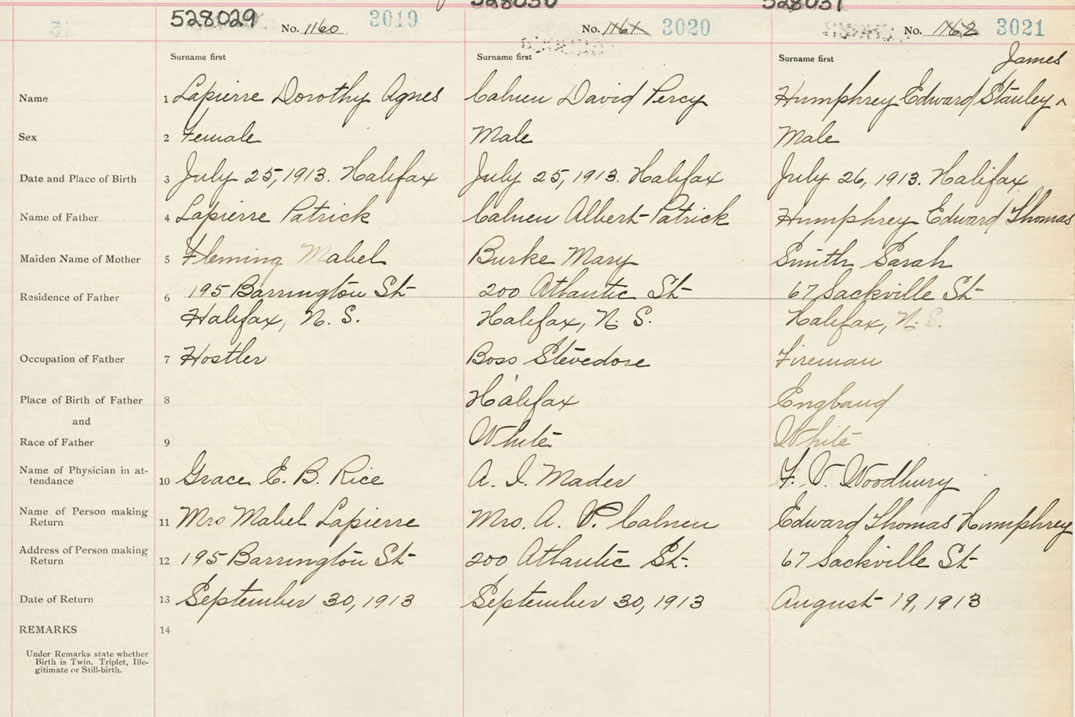 528029 528030 528031
No. 1160 3019 No. 1161 3020 No. 1162 3021
Surname first Surname first Surname first James
Name 1 Lapierre Dorothy Agnes Calnen David Percy Humphrey Edward Stanley ^
Sex 2 Female Male Male
Date and Place of Birth 3 July 25, 1913. Halifax July 25, 1913. Halifax July 26, 1913. Halifax
Name of Father 4 Lapierre Patrick Calnen Albert Patrick Humphrey Edward Thomas
Maiden Name of Mother 5 Fleming Mabel Burke Mary Smith Sarah
Residence of Father 6 195 Barrington St 200 Atlantic St 67 Sackville St
Halifax, N. S. Halifax, N. S. Halifax, N. S.
Occupation of Father 7 Hostler Boss Stevedore Fireman
Place of Birth of Father 8 Halifax England
and
Race of Father 9 White White
Name of Physician in at-
tendance 10 Grace E. B. Rice A. I. Mader F. V. Woodbury
Name of Person making
Return 11 Mrs Mabel Lapierre Mrs. A. P. Calnen Edward Thomas Humphrey
Address of Person making
Return 12 195 Barrington St 200 Atlantic St. 67 Sackville St
Date of Return 13 September 30, 1913 September 30, 1913 August 19, 1913
REMARKS 14
Under Remarks state whether
Birth is Twin, Triplet, Ille-
gitimate or Still-birth.